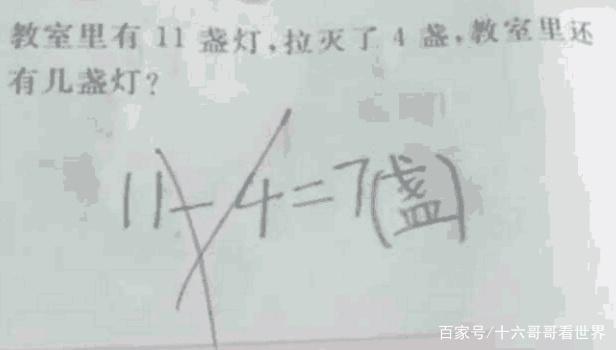 教室里有 11 盏灯,拉灭了 4 盏,教室里还
有几盏灯?
11-4=7(盏)
百家号/十六哥哥看世界